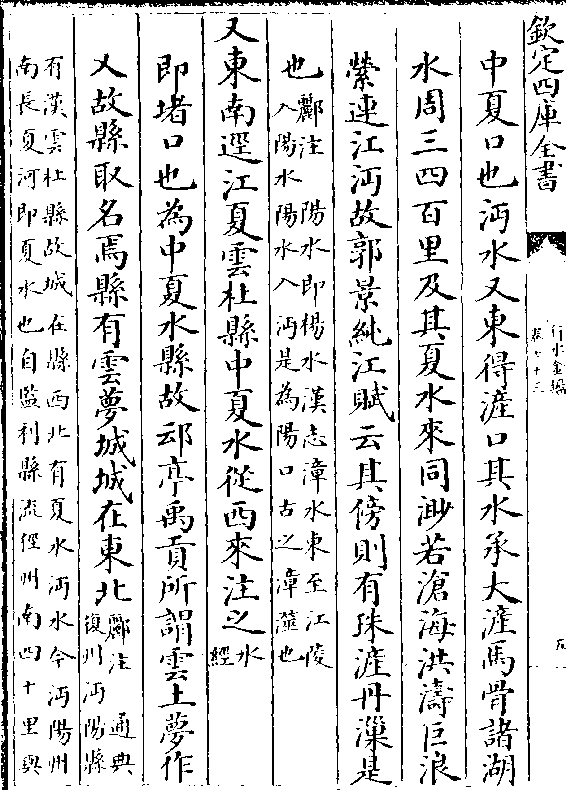 欽定四庫全書
行水金鑑
卷七十三
中夏口也沔水又東得滻口其水承大滻馬骨諸湖
水周三四百里及其夏水來同渺若滄海洪濤巨浪
縈連江沔故郭景純江賦云其傍則有珠滻丹漅是
也酈注 陽水即楊水漢志漳水東至江陵
入陽水陽水入沔是為陽口古之漳澨也
又東南逕江夏雲杜縣中夏水從西來注之水
經
即堵口也為中夏水縣故䢵亭禹貢所謂雲土夢作
乂故縣取名焉縣有雲夢城城在東北酈注 通典
復州沔陽縣
有漢雲杜縣故城在縣西北有夏水沔水今沔陽州
南長夏河即夏水也自監利縣流徑州南四十里與